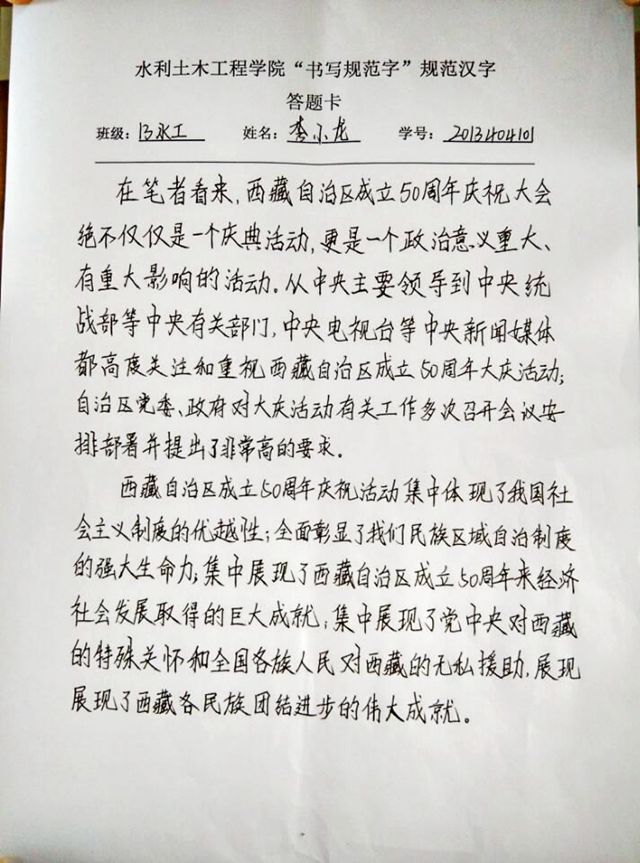 水利土木工程学院“书写规范字”规范汉字
答题卡
班级：13水工 姓名：李小龙 学号：2013404101
在笔者看来，西藏自治区成立50周年庆祝大会
绝不仅仅是一个庆典活动，更是一个政治意义重大、
有重大影响的活动。从中央主要领导到中央统
战部等中央有关部门，中央电视台等中央新闻媒体
都高度关注和重视西藏自治区成立50周年大庆活动；
自治区党委、政府对大庆活动有关工作多次召开会议安
排部署并提出了非常高的要求。
西藏自治区成立50周年庆祝活动集中体现了我国社
会主义制度的优越性；全面彰显了我们民族区域自治制度
的强大生命力；集中展现了西藏自治区成立50周年来经济
社会发展取得的巨大成就；集中展现了党中央对西藏
的特殊关怀和全国各族人民对西藏的无私援助，展现
展现了西藏各民族团结进步的伟大成就。